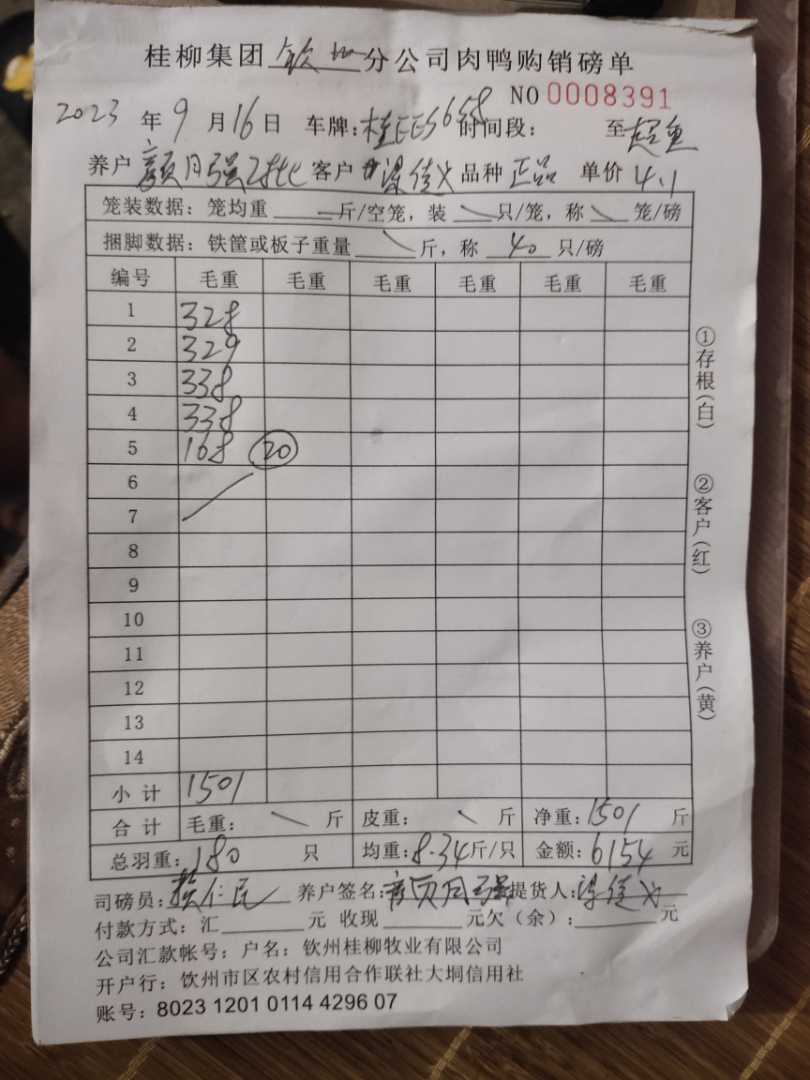 桂柳集团 钦州 分公司肉鸭购销磅单
NO 0008391
2023 年 9 月 16 日 车牌: 桂EES658 时间段: 至
养户 颜月强 客户 梁 品种 正品 单价 4.1
笼装数据: 笼均重 斤/空笼, 装 只/笼, 称 笼/磅
捆脚数据: 铁筐或板子重量 斤, 称 40 只/磅
编号 毛重 毛重 毛重 毛重 毛重 毛重
1 328
2 329
3 338
4 338
5 168 20
6
7
8
9
10
11
12
13
14
小计 1501
合计 毛重: 斤 皮重: 斤 净重: 1501 斤
总羽重: 180 只 均重: 8.34 斤/只 金额: 6154 元
司磅员: 仁民 养户签名: 颜月强 提货人: 梁
付款方式: 汇 元 收现 元欠(余): 元
公司汇款帐号: 户名: 钦州桂柳牧业有限公司
开户行: 钦州市区农村信用合作联社大垌信用社
账号: 8023 1201 0114 4296 07
①存根(白)
②客户(红)
③养户(黄)